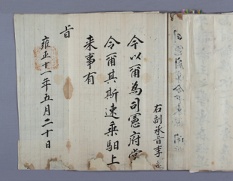 右副承旨李
今以爾爲司憲府掌
令爾其斯速乘馹上
來事有
旨
雍正十一年五月二十日